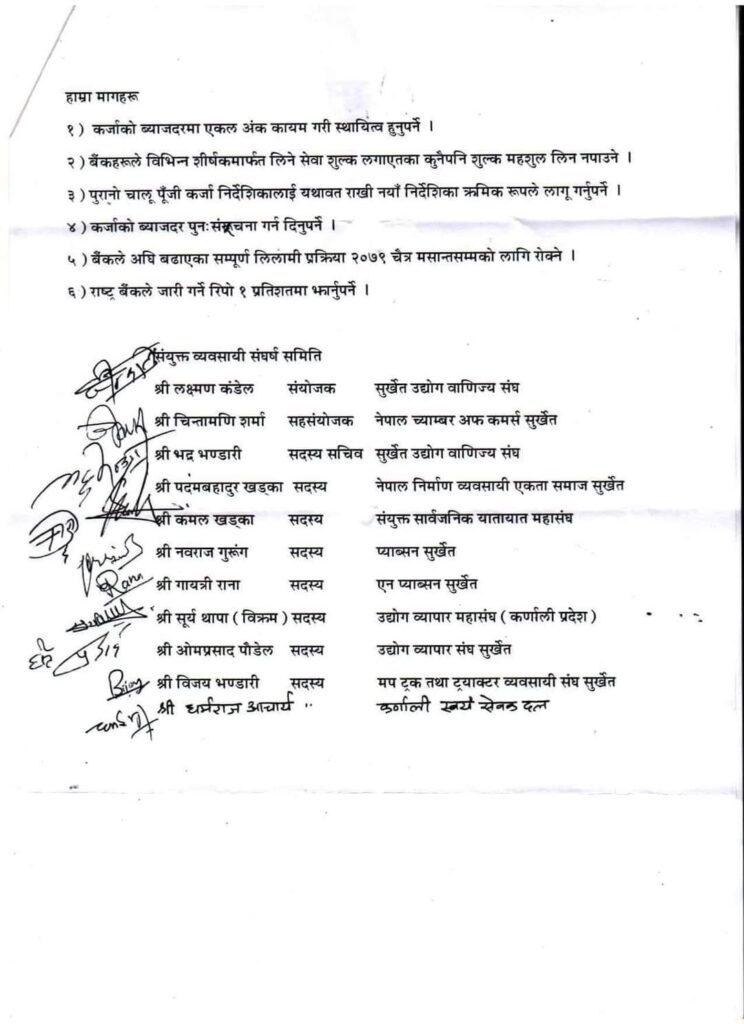 हाम्रा मागहरू
१ ) कर्जाको ब्याजदरमा एकल अंक कायम गरी स्थायित्व हुनुपर्ने ।
२ ) बैंकहरूले विभिन्न शीर्षकमार्फत लिने सेवा शुल्क लगाएतका कुनैपनि शुल्क महशुल लिन नपाउने ।
३ ) पुरानो चालू पूँजी कर्जा निर्देशिकालाई यथावत राखी नयाँ निर्देशिका क्रमिक रूपले लागू गर्नुपर्ने ।
४ ) कर्जाको ब्याजदर पुनःसंरचना गर्न दिनुपर्ने ।
५ ) बैंकले अघि बढाएका सम्पूर्ण लिलामी प्रक्रिया २०७९ चैत्र मसान्तसम्मको लागि रोक्ने ।
६ ) राष्ट्र बैंकले जारी गर्ने रिपो १ प्रतिशतमा झार्नुपर्ने ।
संयुक्त व्यवसायी संघर्ष समिति
श्री लक्ष्मण कंडेल संयोजक सुर्खेत उद्योग वाणिज्य संघ
श्री चिन्तामणि शर्मा सहसंयोजक नेपाल च्याम्बर अफ कमर्स सुर्खेत
श्री भद्र भण्डारी सदस्य सचिव सुर्खेत उद्योग वाणिज्य संघ
श्री पदमबहादुर खड्का सदस्य नेपाल निर्माण व्यवसायी एकता समाज सुर्खेत
श्री कमल खड्का सदस्य संयुक्त सार्वजनिक यातायात महासंघ
श्री नवराज गुरूंग सदस्य प्याब्सन सुर्खेत
Rana श्री गायत्री राना सदस्य एन प्याब्सन सुर्खेत
श्री सूर्य थापा ( विक्रम ) सदस्य उद्योग व्यापार महासंघ ( कर्णाली प्रदेश )
श्री ओमप्रसाद पौडेल सदस्य उद्योग व्यापार संघ सुर्खेत
श्री विजय भण्डारी सदस्य मप ट्रक तथा ट्रयाक्टर व्यवसायी संघ सुर्खेत
श्री धर्मराज आचार्य " कर्णाली स्वयं सेवक दल